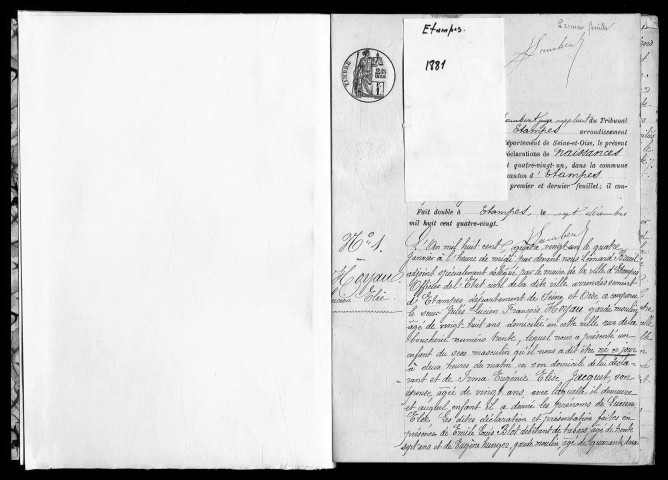 Premier feuillet
Etampes.
1881
Lambert
TIMBRE
Lambert juge suppléant du Tribunal
Etampes arrondissement
département de Seine-et-Oise, le présent
déclarations de naissances
quatre-vingt-un, dans la commune
canton d'Etampes
premier et dernier feuillet; il con-
Fait double à Etampes, le sept décembre
mil huit cent quatre-vingt.
Lambert
No 1.
Hoyau
Lucien Elie
L'An mil huit cent quatre vingt un le quatre
Janvier à l'heure de midi par devant nous Léonard
adjoint spécialement délégué par le maire de la ville d'Etampes
Officier de l'Etat civil de la dite ville arrondissement
d'Etampes département de Seine et Oise, a comparu
le sieur Jules Lucien François Hoyau garde moulin
âgé de vingt-huit ans domicilié en cette ville rue de la
boucherie numéro trente, lequel nous a présenté un
enfant du sexe masculin qu'il nous a dit être né ce jour
à deux heures du matin, en son domicile de lui décla-
rant et de Irma Eugénie Elise Jacquet, son
épouse, agée de vingt ans, avec laquelle il demeure
et auquel enfant il a donné les prénoms de Lucien
Elie. Les dites déclaration et présentation faites en
présence de Emile Louis Blot débitant de tabacs, âgé de trente
sept ans et de Eugène garde moulin, âgé de quarante deux